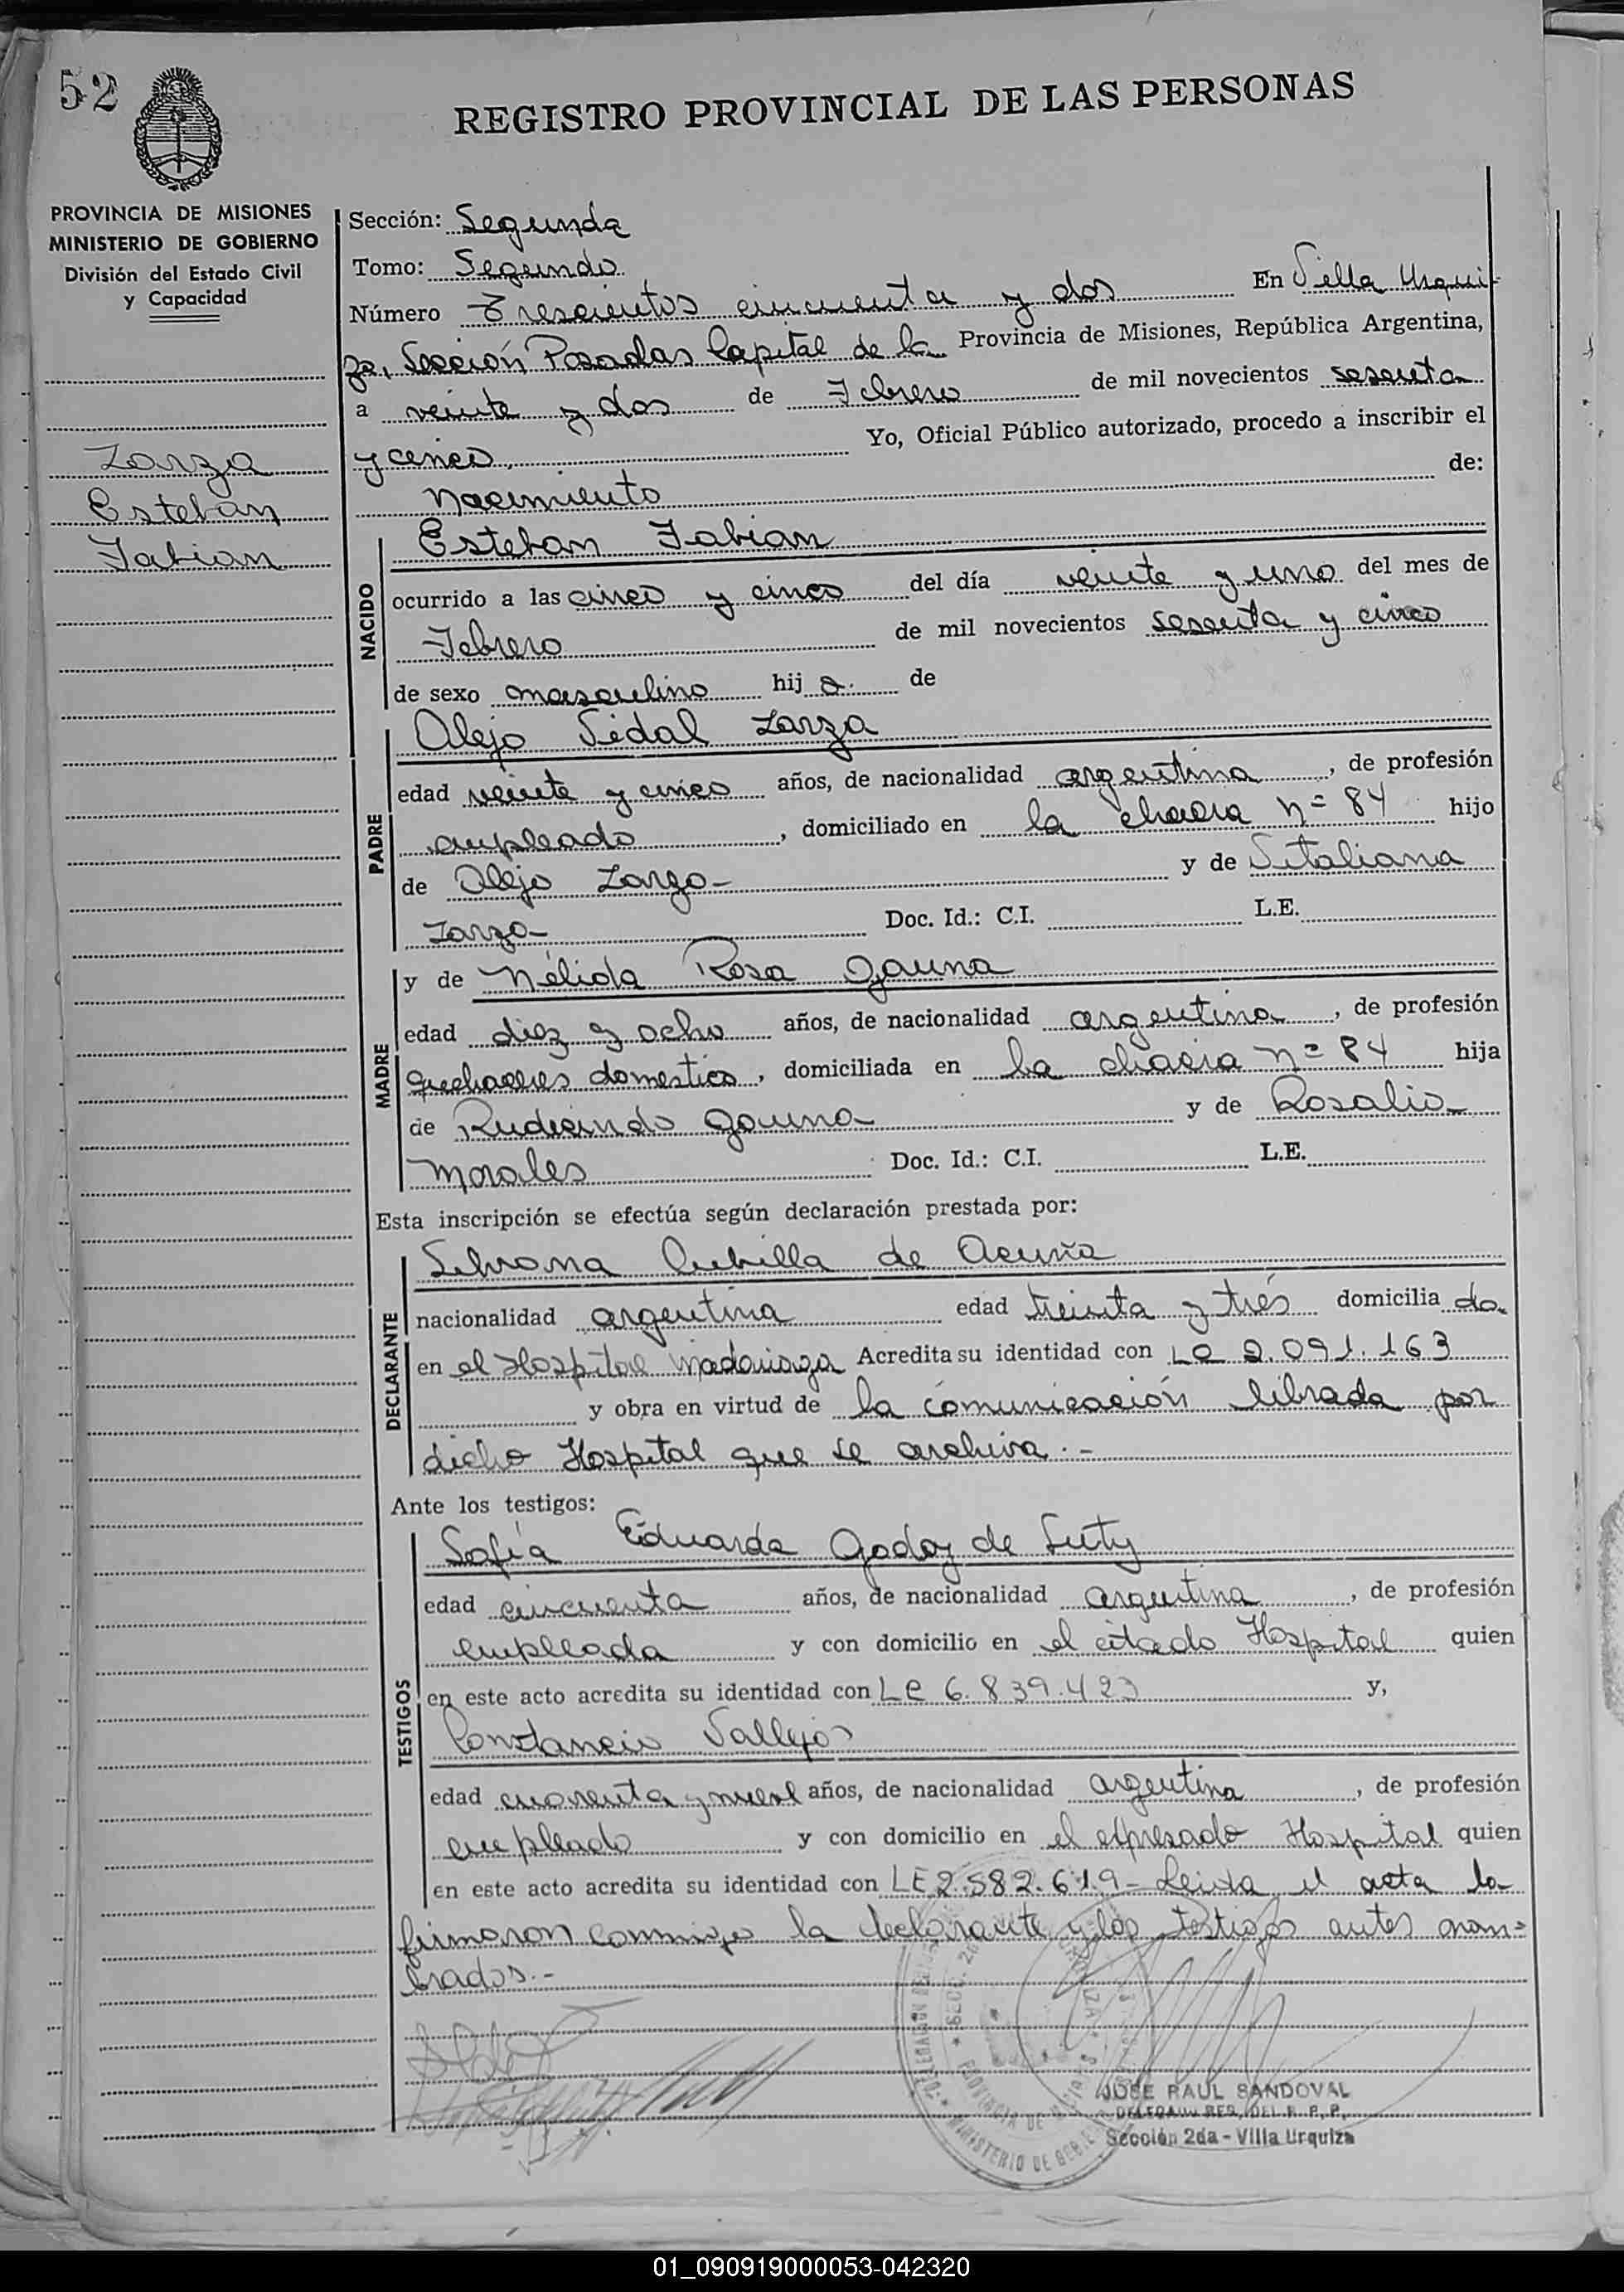 52
REGISTRO PROVINCIAL DE LAS PERSONAS
PROVINCIA DE MISIONES
MINISTERIO DE GOBIERNO
División del Estado Civil
y Capacidad
Zarza
Esteban
Fabian
Sección: Segunda
Tomo: Segundo
Número Trescientos cincuenta y dos En Villa Urqui-
za, Sección Posadas Capital de la Provincia de Misiones, República Argentina,
a veinte y dos de Febrero de mil novecientos sesenta
y cinco, Yo, Oficial Público autorizado, procedo a inscribir el
nacimiento de:
NACIDO
Esteban Fabian
ocurrido a las cinco y cinco del día veinte y uno del mes de
Febrero de mil novecientos sesenta y cinco
de sexo masculino hij o. de
PADRE
Alejo Vidal Zarza
edad veinte y cinco años, de nacionalidad argentina, de profesión
empleado, domiciliado en la chacra nº 84 hijo
de Alejo Zarza y de Vitaliana
Zarza Doc. Id.: C.I. L.E.
MADRE
y de Nélida Rosa Gauna
edad diez y ocho años, de nacionalidad argentina, de profesión
quehaceres domestico, domiciliada en la chacra nº 84 hija
de Rudecindo Gauna y de Rosalia
Morales Doc. Id.: C.I. L.E.
Esta inscripción se efectúa según declaración prestada por:
DECLARANTE
Silvana Cubilla de Acuña
nacionalidad argentina edad treinta y trés domicilia da
en el Hospital Madariaga Acredita su identidad con LC 2.091.163
y obra en virtud de la comunicación librada por
dicho Hospital que se archiva.-
Ante los testigos:
TESTIGOS
Sofía Eduarda Godoy de
edad cincuenta años, de nacionalidad argentina, de profesión
empleada y con domicilio en el citado Hospital quien
en este acto acredita su identidad con LC 6.839.423 y,
Constancio Vallejos
edad cuarenta y nueve años, de nacionalidad argentina, de profesión
empleado y con domicilio en el expresado Hospital quien
en este acto acredita su identidad con LE 2.582.619- Leida el acta la
firmaron conmigo la declarante y los testigos antes nom=
brados.-
JOSE RAUL SANDOVAL
DELEGADO RES. DEL R. P. P.
Sección 2da - Villa Urquiza
MINISTERIO DE GOBIERNO
PROVINCIA DE MISIONES
01_090919000053-042320